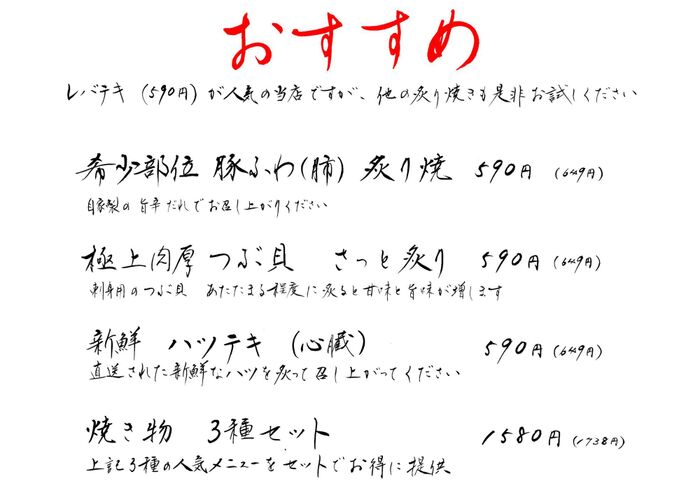 おすすめ
レバテキ (590円) が人気の当店ですが、他の炙り焼きも是非お試しください
希少部位 豚ふわ(肺) 炙り焼 590円 (649円)
自家製の旨辛だれでお召し上がりください
極上肉厚 つぶ貝 さっと炙り 590円 (649円)
刺身用のつぶ貝 あたたまる程度に炙ると甘味と旨味が増します
新鮮 ハツテキ (心臓) 590円 (649円)
直送された新鮮なハツを炙って召し上がってください
焼き物 3種セット 1580円 (1738円)
上記3種の人気メニューをセットでお得に提供